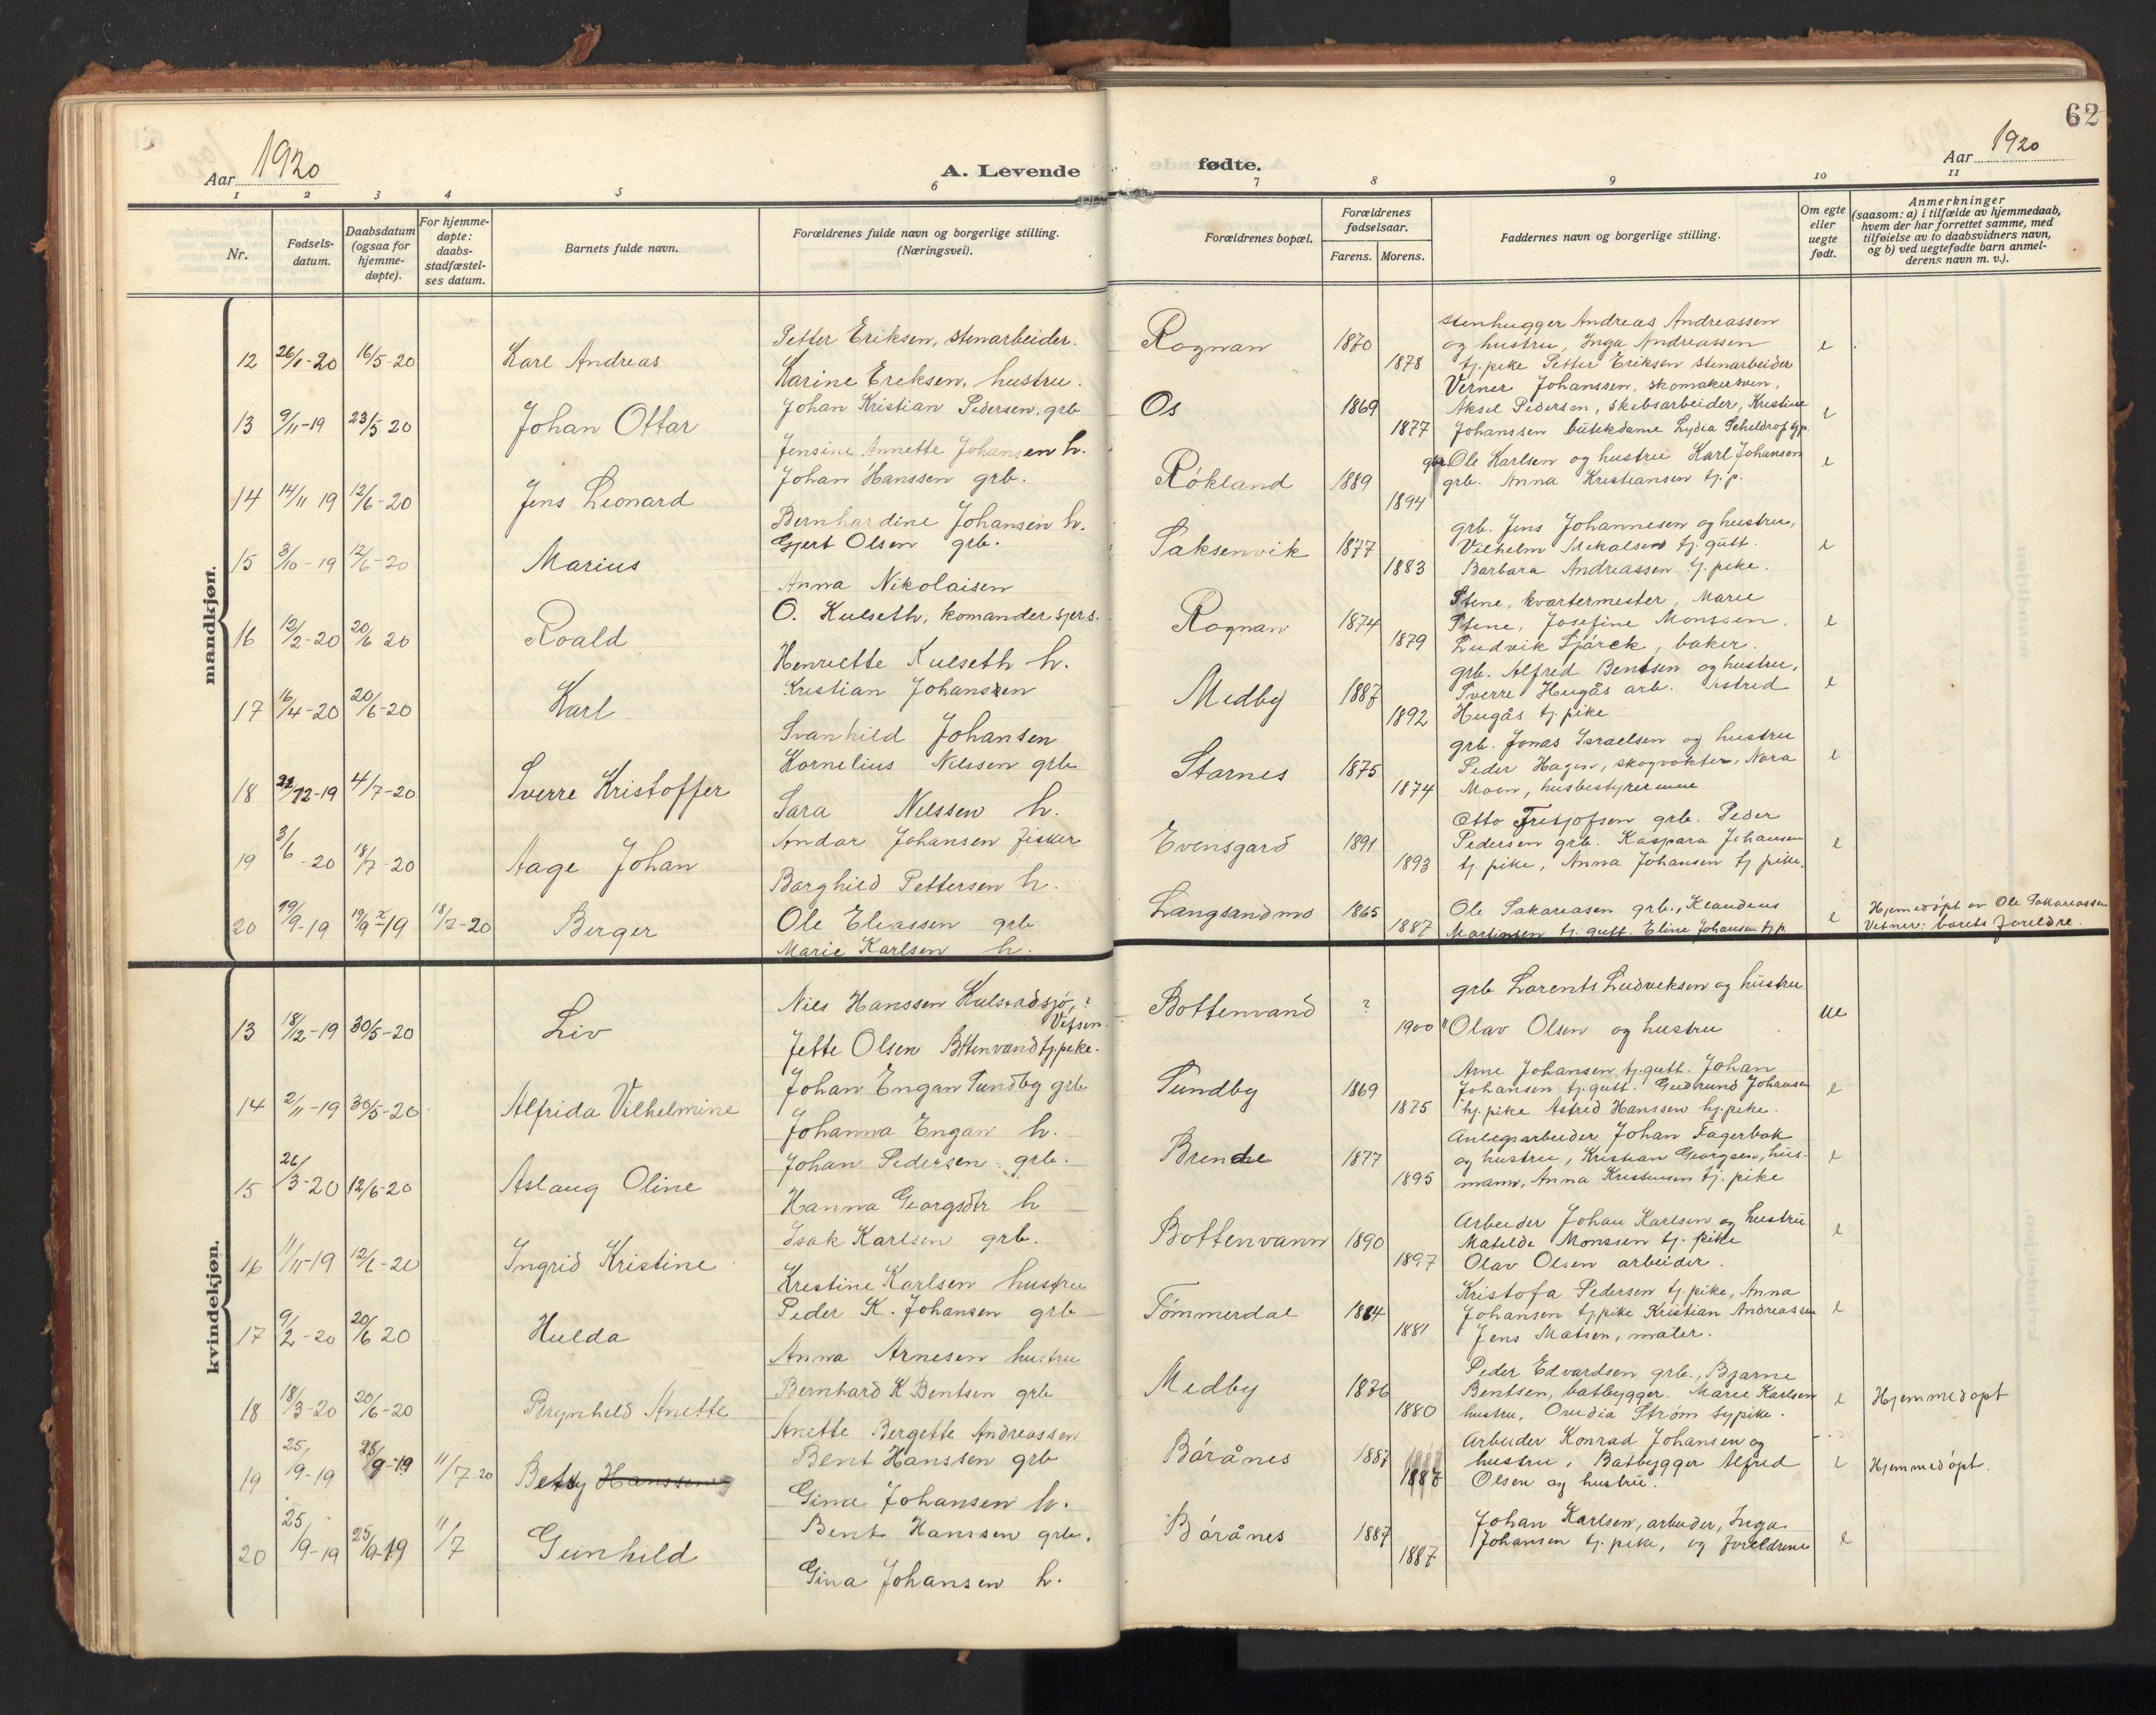 62
Aar 1920
A. Levende
fødte.
Aar 1920
1 2 3 4 5 6 7 8 9 10 11
Nr.
Fødsels-
datum.
Daabsdatum
(ogsaa for
hjemme-
døpte).
For hjemme-
døpte:
daabs-
stadfæstel-
ses datum.
Barnets fulde navn.
Forældrenes fulde navn og borgerlige stilling.
(Næringsvei).
Forældrenes bopæl.
Forældrenes
fødselsaar.
Farens. Morens.
Faddernes navn og borgerlige stilling.
Om egte
eller
uegte
født.
Anmerkninger
(saasom: a) i tilfælde av hjemmedaab,
hvem der har forrettet samme, med
tilføielse av to daabsvidners navn,
og b) ved uegtefødt barn anmel-
derens navn m. v.).
mandkjøn.
12 26/1-20 16/5-20 Karl Andreas
Petter Eriksen, stenarbeider.
Karine Ereksen, hustru.
Rognan 1870 1878
Stenhugger Andreas Andreassen
og hustru, Inga Andreassen
tj. pike Petter Eriksen stenarbeider
e
13 9/11-19 23/5 20 Johan Ottar
Johan Kristian Pedersen, grb
Jensine Annette Johansen h.
Os 1869 1877
Verner Johanssen, skomakersven,
Aksel Pedersen, skibsarbeider, Kristine
Johanssen butekdame Lydia
e
14 14/11 19 12/6-20 Jens Leonard
Johan Hanssen grb.
Bernhardine Johansen h.
Rökland 1889 1894
grb. Ole Karlsen og hustru Karl Johansen
grb. Anna Kristiansen tj. p.
e
15 3/10-19 12/6-20 Marius
Gjert Olsen grb.
Anna Nikolaisen
Saksenvik 1877 1883
grb. Jens Johannesen og hustru,
Vilhelm Mikalsen tj. gutt.
Barbara Andreassen tj. pike.
e
16 12/2-20 20/6 20 Roald
O. Kulseth, komandersjers.
Henriette Kulseth h.
Rognan 1874 1879
Stene, kvartermester, Marie
Stene, Josefine Monssen,
Ludvik Sjårck, baker.
e
17 16/4-20 20/6-20 Karl
Kristian Johansen
Svanhild Johansen
Medby 1887 1892
grb. Alfred Bentsen og hustru,
Sverre Hugås arb. Astrid
Hugås tj. pike
e
18 22/12-19 4/7-20 Sverre Kristoffer
Kornelius Nilssen grb
Sara Nilssen h.
Starnes 1875 1874
grb. Jonas Israelsen og hustru
Peder Hagen, skogvokter, Nora
Moen, husbestyrerinne
e
19 3/6-20 18/7-20 Aage Johan
Andor Johansen fisker
Borghild Pettersen h.
Evensgard 1891 1893
Otto Fretjofsen grb. Peder
Pedersen grb. Kaspara Johansen
tj. pike, Anna Johansen tj pike.
e
20 19/9-19 19/9-19 18/7-20 Berger
Ole Eleassen grb
Marie Karlsen h.
Langsandmo 1865 1887
Ole Sakariasen grb., Klaudeus
Martinsen tj. gutt. Eline Johansen tj. p.
e
Hjemedöpt av Ole Sakareassen
Vetner: barets foreldre.
kvindekjøn.
13 18/12-19 30/5-20 Liv
Nils Hanssen Kulstadsjö, ?
Vefsen.
Jette Olsen Bttenvand tj. pike.
Bottenvand ? 1900
grb Larents Ludveksen og hustru
" Olav Olsen og hustru
ue
14 2/11-19 30/5-20 Alfrida Vilhelmine
Johan Engan Sundby grb
Johanna Engan h.
Sundby 1869 1875
Arne Johansen tj. gutt. Johan
Johansen tj. gutt. Gudrund Johansen
hj. pike Astrid Hanssen hj. pike.
e
15 26/3-20 12/6-20 Aslaug Oline
Johan Pedersen grb.
Hanna Georgsdtr h
Brende 1877 1895
Anlegsarbeider Johan Fagerbak
og hustru, Kristian Georgsen, hus-
mann, Anna Kristensen tj. pike
e
16 11/11-19 12/6-20 Ingrid Kristine
Isak Karlsen grb.
Krestine Karlsen hustru
Bottenvann 1890 1897
Arbeider Johan Karlsen og hustru
Matelde Monssen tj. pike
Olav Olsen arbeider.
e
17 9/2-20 20/6 20 Hulda
Peder K. Johansen grb
Anna Arnesen hustru
Tömmerdal 1884 1881
Kristofa Pedersen tj. pike, Anna
Johansen tj. pike Kristian Andreassen
Jens Matsen, maler.
e
18 18/3-20 20/6-20 Brynheld Anette
Bernhard K Bentsen grb
Anette Bergette Andreassen
Medby 1876 1880
Peder Edvardsen grb., Bjarne
Bentsen, batbygger. Marie Karlsen
hustru, Ovedia Ström sypike.
e
Hjemmedopt
19 25/9-19 25/9-19 11/7-20 Betsy Hanssen
Bent Hanssen grb
Gina Johansen h.
Båränes 1887 1887
Arbeider Konrad Johansen og
hustru, Batbygger Alfred
Olsen og hustru.
e
Hjemmedöpt.
20 25/9-19 25/9-19 11/7 Gunhild
Bent Hanssen grb.
Gina Johansen h.
Båränes 1887 1887
Johan Karlsen, arbeider, Inga
Johansen tj. pike, og foreldrene
e